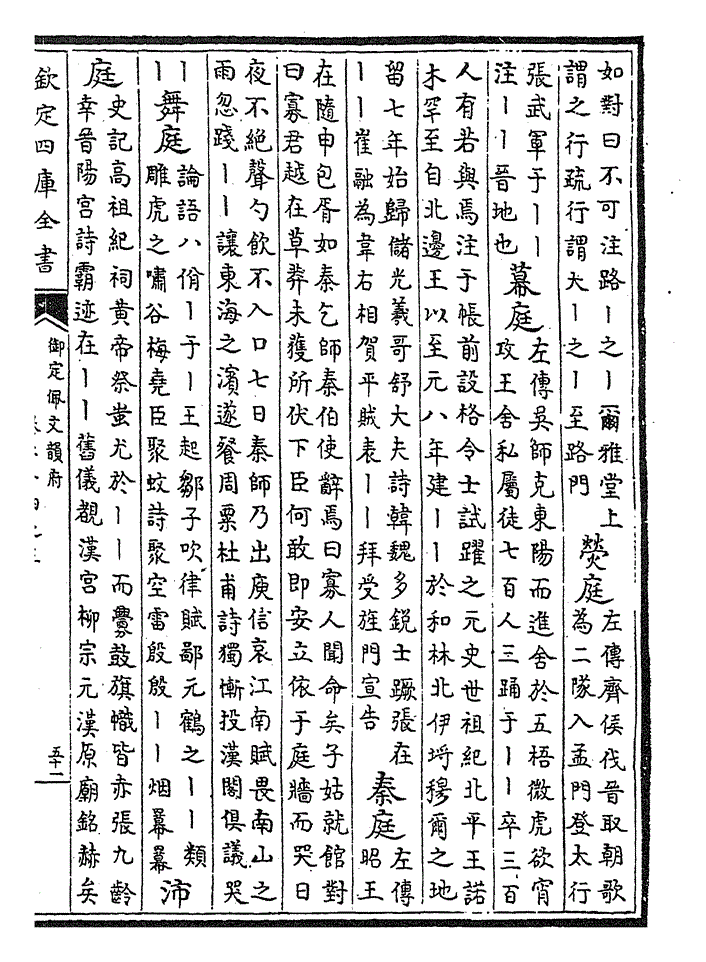 如對曰不可注路丨之丨爾雅堂上
謂之行疏行謂大丨之丨至路門
熒庭
左傳齊侯伐晉取朝歌
為二隊入孟門登太行
張武軍于丨丨
注丨丨晉地也
幕庭
左傳吳師克東陽而進舍於五梧微虎欲宵
攻王舍私屬徒七百人三踊于丨丨卒三百
人有若與焉注于帳前設格令士試躍之元史世祖紀北平王諾
木罕至自北邊王以至元八年建丨丨於和林北伊埒穆爾之地
留七年始歸儲光羲哥舒大夫詩韓魏多銳士蹶張在
丨丨崔融為韋右相賀平賊表丨丨拜受旌門宣告
秦庭
左傳
昭王
在隨申包胥如秦乞師秦伯使辭焉曰寡人聞命矣子姑就館對
曰寡君越在草莽未獲所伏下臣何敢即安立依于庭牆而哭日
夜不絶聲勺飲不入口七日秦師乃出庾信哀江南賦畏南山之
雨忽踐丨丨讓東海之濱遂餐周粟杜甫詩獨慚投漢閣俱議哭
丨
丨
舞庭
論語八佾丨于丨王起鄒子吹律賦鄙元鶴之丨丨類
雕虎之嘯谷梅堯臣聚蚊詩聚空雷殷殷丨丨烟羃羃
沛
庭
史記高祖紀祠黄帝祭蚩尤於丨丨而釁鼓旗幟皆赤張九齡
幸晉陽宫詩霸迹在丨丨舊儀覩漢宫柳宗元漢原廟銘赫矣
欽定四庫全書
御定佩文韻府
五十二